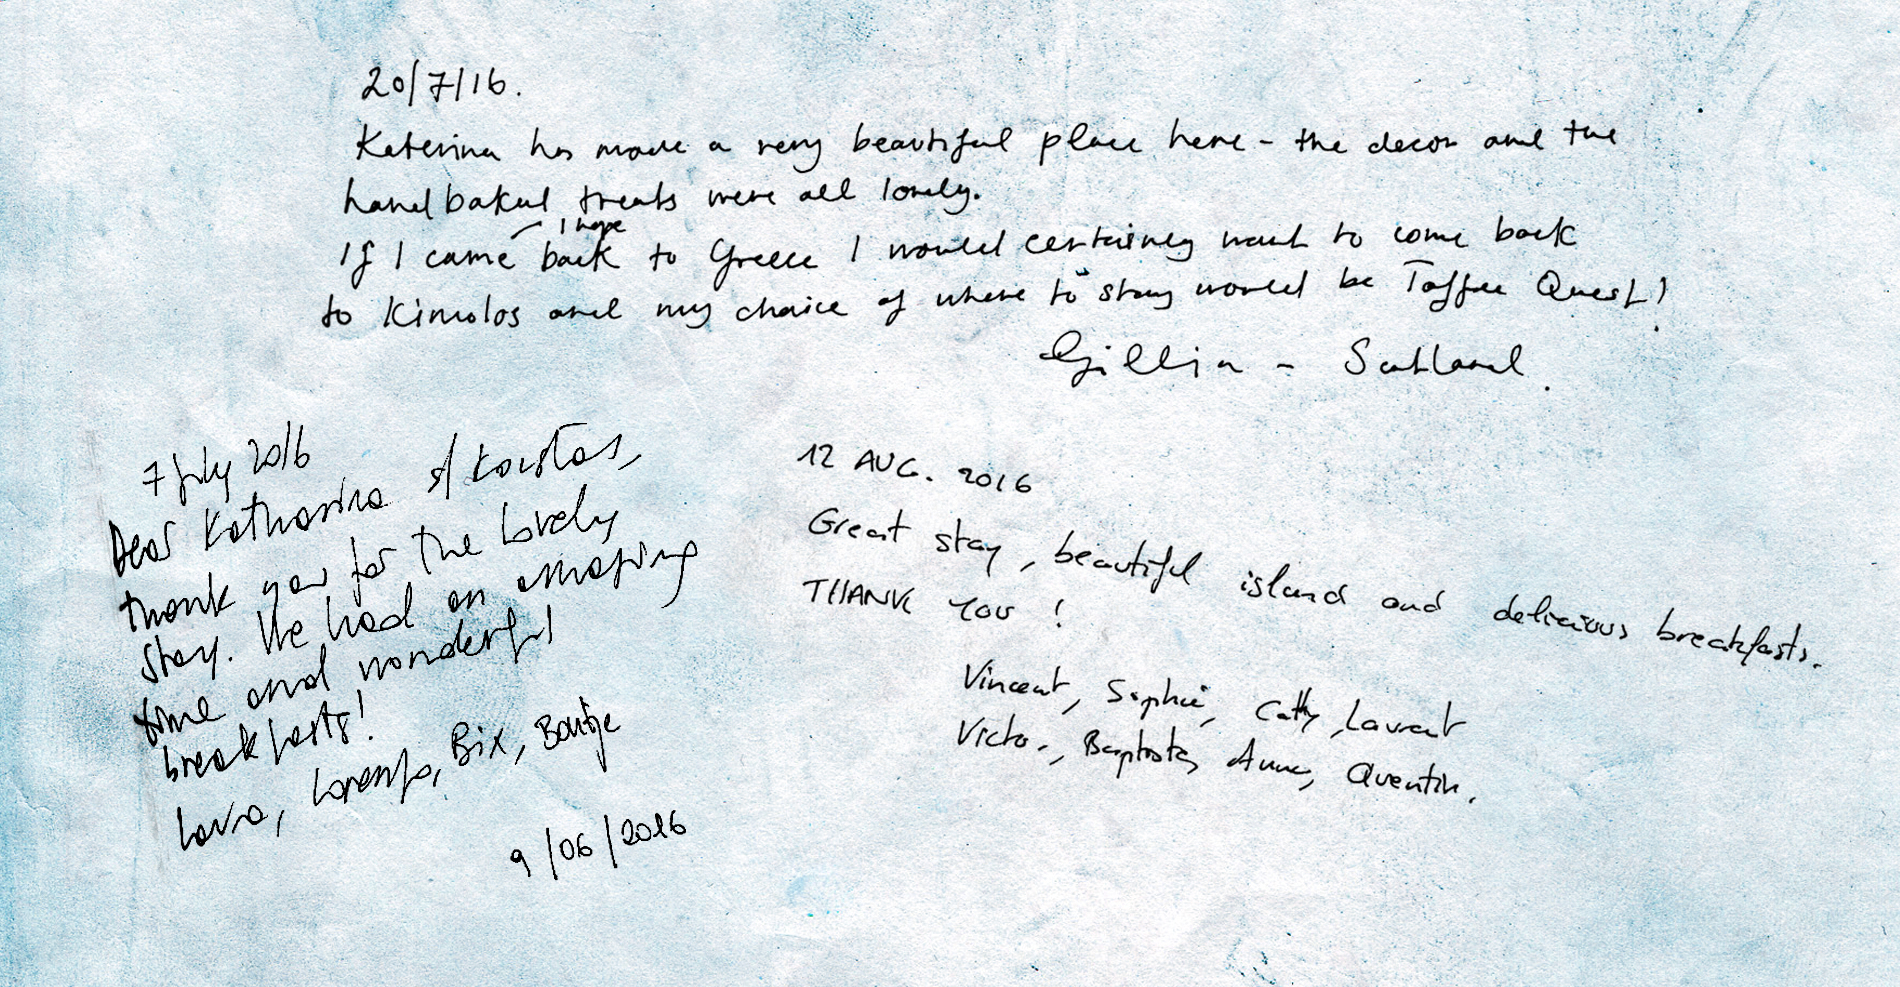 20/7/16.
Katerina has made a very beautiful place here - the decor and the
handbaked treats were all lovely.
I hope
If I came back to Greece I would certainly want to come back
to Kimolos and my choice of where to stay would be Toffee Quest!
Gillian - Scotland.
7 July 2016
Dear Katharina & Kostas,
thank you for the lovely
stay. We had an amazing
time and wonderful
breakfasts!
Laura, Lorenzo, Bix,
9/06/2016
12 AUG. 2016
Great stay, beautiful island and delicious breakfasts.
THANK YOU !
Vincent, Sophie, Cathy, Laurent
Victor, Baptiste, Anne, Quentin.